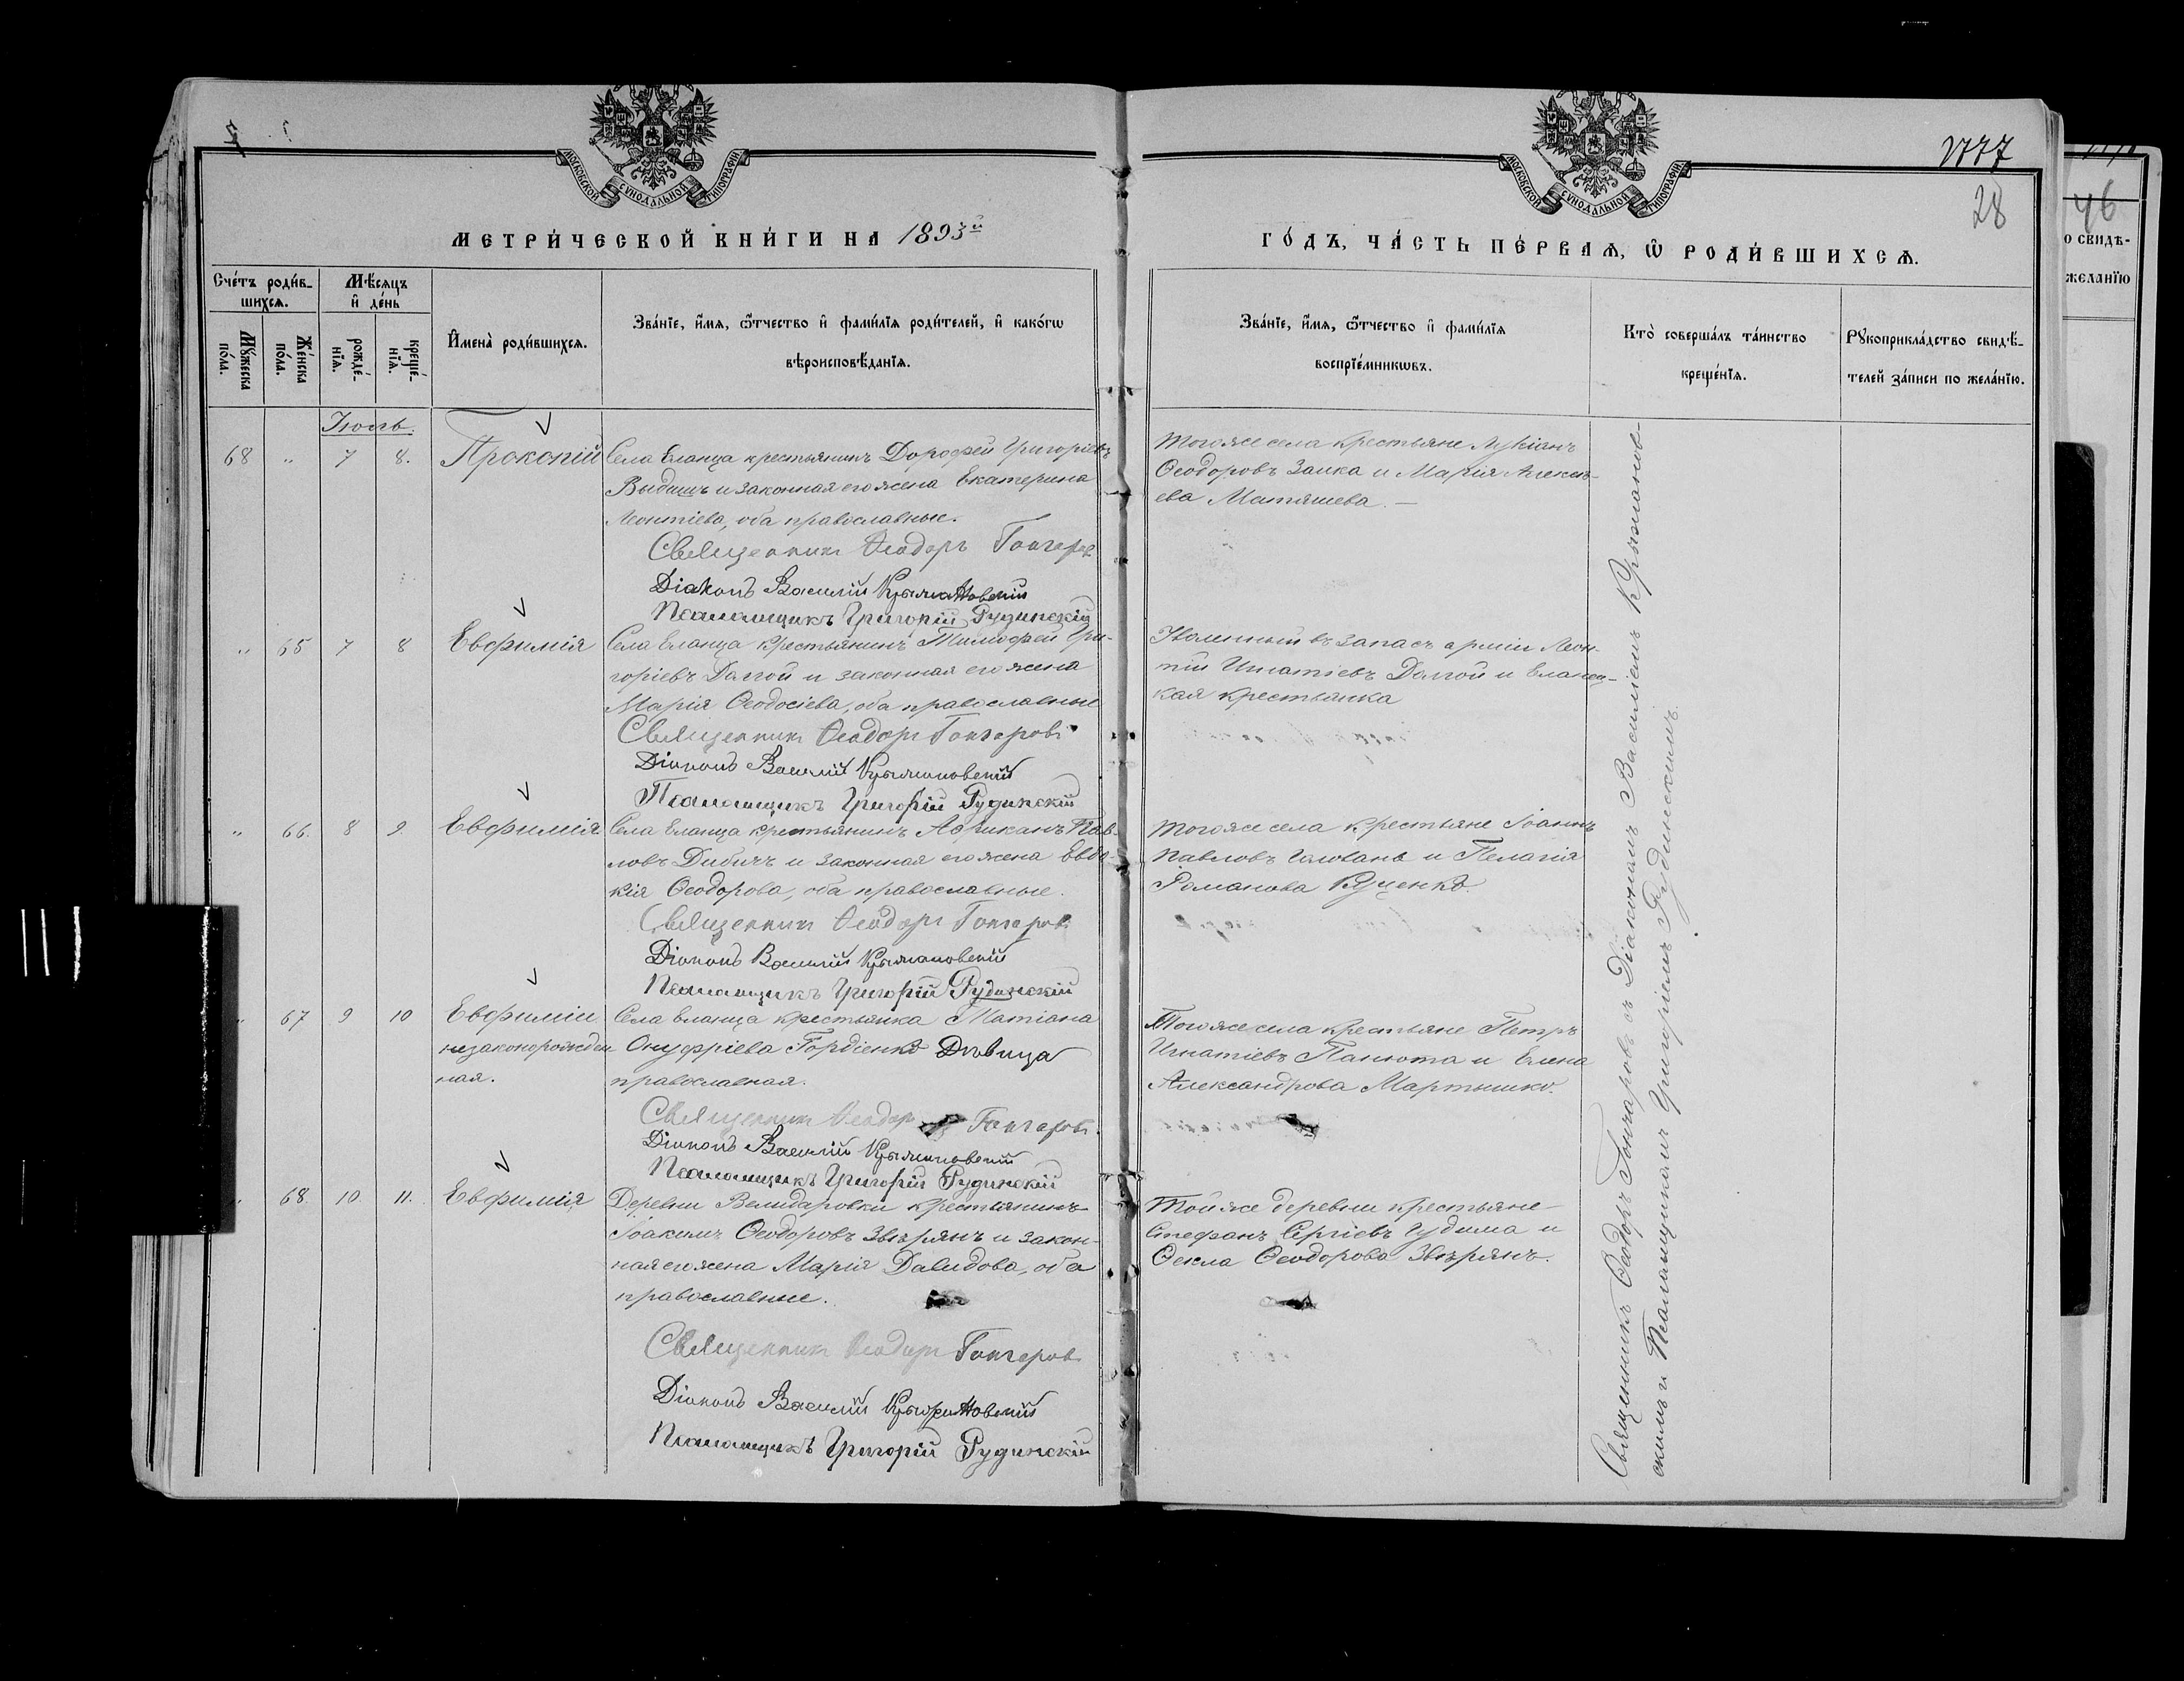 МОСКОВСКОЙ СѴНОДАЛЬНОЙ ТИПОГРАФІИ
МОСКОВСКОЙ СѴНОДАЛЬНОЙ ТИПОГРАФІИ
28
46
МЕТРИ́ЧЕСКОЙ КНИ́ГИ НА 1893й
ГО́ДЪ, ЧА́СТЬ ПЕ́РВАѦ, Ѡ РОДИ́ВШИХСѦ.
о свидѣ-
желанїю
Сче́тъ роди́в-
шихсѧ.
Мꙋ́жеска по́ла.
Же́нска по́ла.
Мѣ́сѧцъ
и де́нь
рожде́-нїѧ.
креще́-нїѧ.
И҆мена̀ роди́вшихсѧ.
Зва́нїе, и҆́мѧ, ѻ҆́тчество и҆ фами́лїѧ роди́телей, и҆ како́гѡ
вѣроисповѣ́данїѧ.
Зва́нїе, и҆́мѧ, ѻ҆́тчество и҆ фами́лїѧ
воспрїе́мникѡвъ.
Кто̀ соверша́лъ та́инство
креще́нїѧ.
Рꙋкоприкла́дство свидѣ́-
телей за́писи по жела́нїю.
Іюль.
68 " 7 8. Прокопій
Села Еланца крестьянинъ Дорофей Григоріевъ
Выдишъ и законная его жена Екатерина
Леонтіева, оба православные.
Священникъ Ѳеодоръ Гончаровъ
Діаконъ Василій Крыжановскій
Псаломщикъ Григорій Рудинскій
Того же села крестьяне Лукіанъ
Ѳеодоровъ Заика и Марія Алексѣ-
ева Матяшева. —
" 65 7 8 Евфимія
Села Еланца крестьянинъ Тимофей Гри-
горіевъ Долгой и законная его жена
Марія Ѳеодосіева, оба православные
Священникъ Ѳеодоръ Гончаровъ
Діаконъ Василій Крыжановскій
Псаломщикъ Григорій Рудинскій
Уволенный въ запасъ арміи Леон-
тій Игнатіевъ Долгой и Еланец-
кая крестьянка
" 66. 8 9. Евфимія
Села Еланца крестьянинъ Африканъ Пав-
ловъ Дибичъ и законная его жена Евдо-
кія Ѳеодорова, оба православные.
Священникъ Ѳеодоръ Гончаровъ
Діаконъ Василій Крыжановскій
Псаломщикъ Григорій Рудинскій
Того же села крестьяне Іоаннъ
Павловъ Головань и Пелагія
Романова Куценко.
" 67 9 10 Евфимія
незаконорожден
ная.
Села Еланца крестьянка Татіана
Онуфріева Гордіенко Дѣвица
православная.
Священникъ Ѳеодоръ Гончаровъ.
Діаконъ Василій Крыжановскій
Псаломщикъ Григорій Рудинскій
Того же села крестьяне Петръ
Игнатіевъ Панюта и Елена
Александрова Мартышко.
" 68. 10. 11. Евфимія
Деревни Велидаровки крестьянинъ
Іоакимъ Ѳеодоровъ Звѣрянъ и закон-
ная его жена Марія Давидова, оба
православные.
Священникъ Ѳеодоръ Гончаровъ
Діаконъ Василій Крыжановскій
Псаломщикъ Григорій Рудинскій
Той же деревни крестьяне
Стефанъ Сергіевъ Гудима и
Ѳекла Ѳеодорова Звѣрянъ.
Священникъ Ѳеодоръ Гончаровъ съ Діакономъ Василіемъ Крыжанов-
скимъ и Псаломщикомъ Григоріемъ Рудинскимъ.